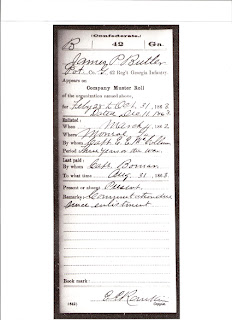 (Confederate.)
B 42 Ga.
James P Butler
Pvt, Co. , 42 Reg't Georgia Infantry.
Appears on
Company Muster Roll
of the organization named above,
for to Oct. 31, 1863
Dated Dec 11 1863
Enlisted:
When March 4, 1862
Where Monroe
By whom Capt.
Period three years or the war
Last paid:
By whom Capt.
To what time Aug. 31, 1863
Present or absent Present
Remarks: Commutation due
since enlistment
Book mark:
(642)
Copyist.